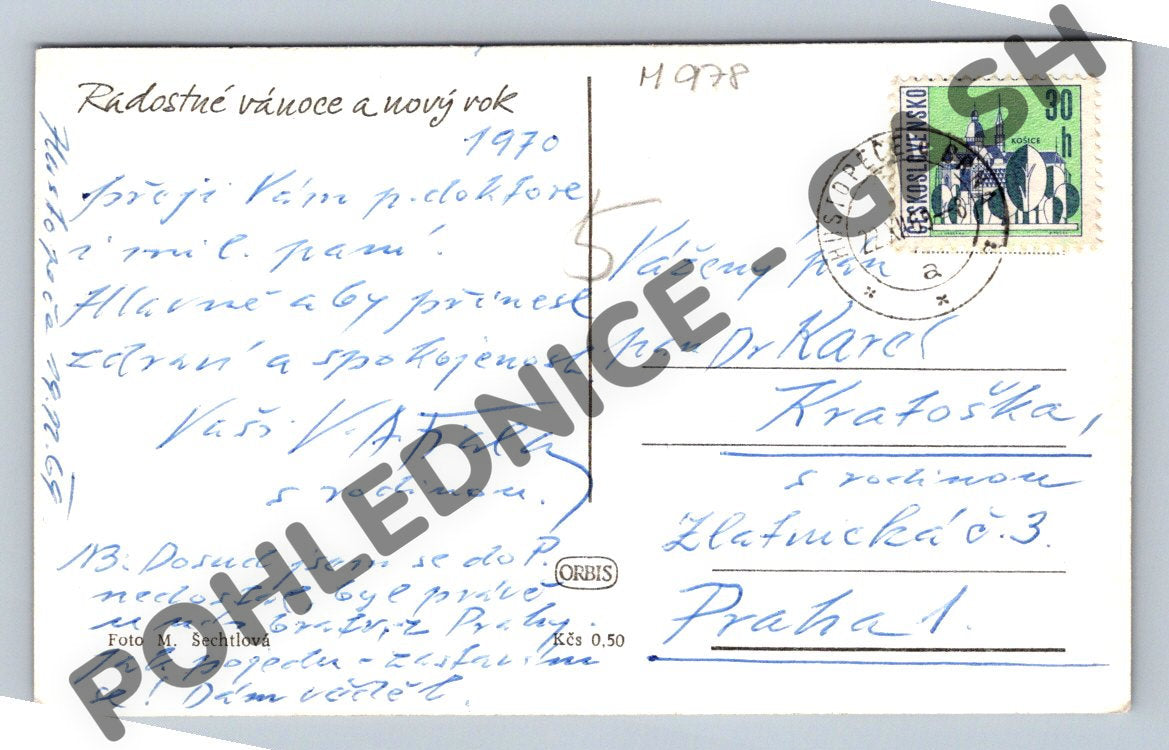 Radostné vánoce a nový rok
1970
přeji Vám p. doktore
i mil. paní.
Hlavně aby přinesl
zdraví a spokojenost
Vaši V. A.
s rodinou.
NB: Dosud jsem se do P.
nedostal byl právě
u bratr z Prahy.
pojedu - zastavím
se! Dám vědět.
Hustopeče 19.XII.69
Foto M. Šechtlová
ORBIS
Kčs 0,50
M 978
5
ČESKOSLOVENSKO
30
h
KOŠICE
HUSTOPEČE
a
Vážený pán
pan Dr Karel
Kratoška,
s rodinou
Zlatnická č. 3.
Praha 1.
POHLEDNICE - GASH